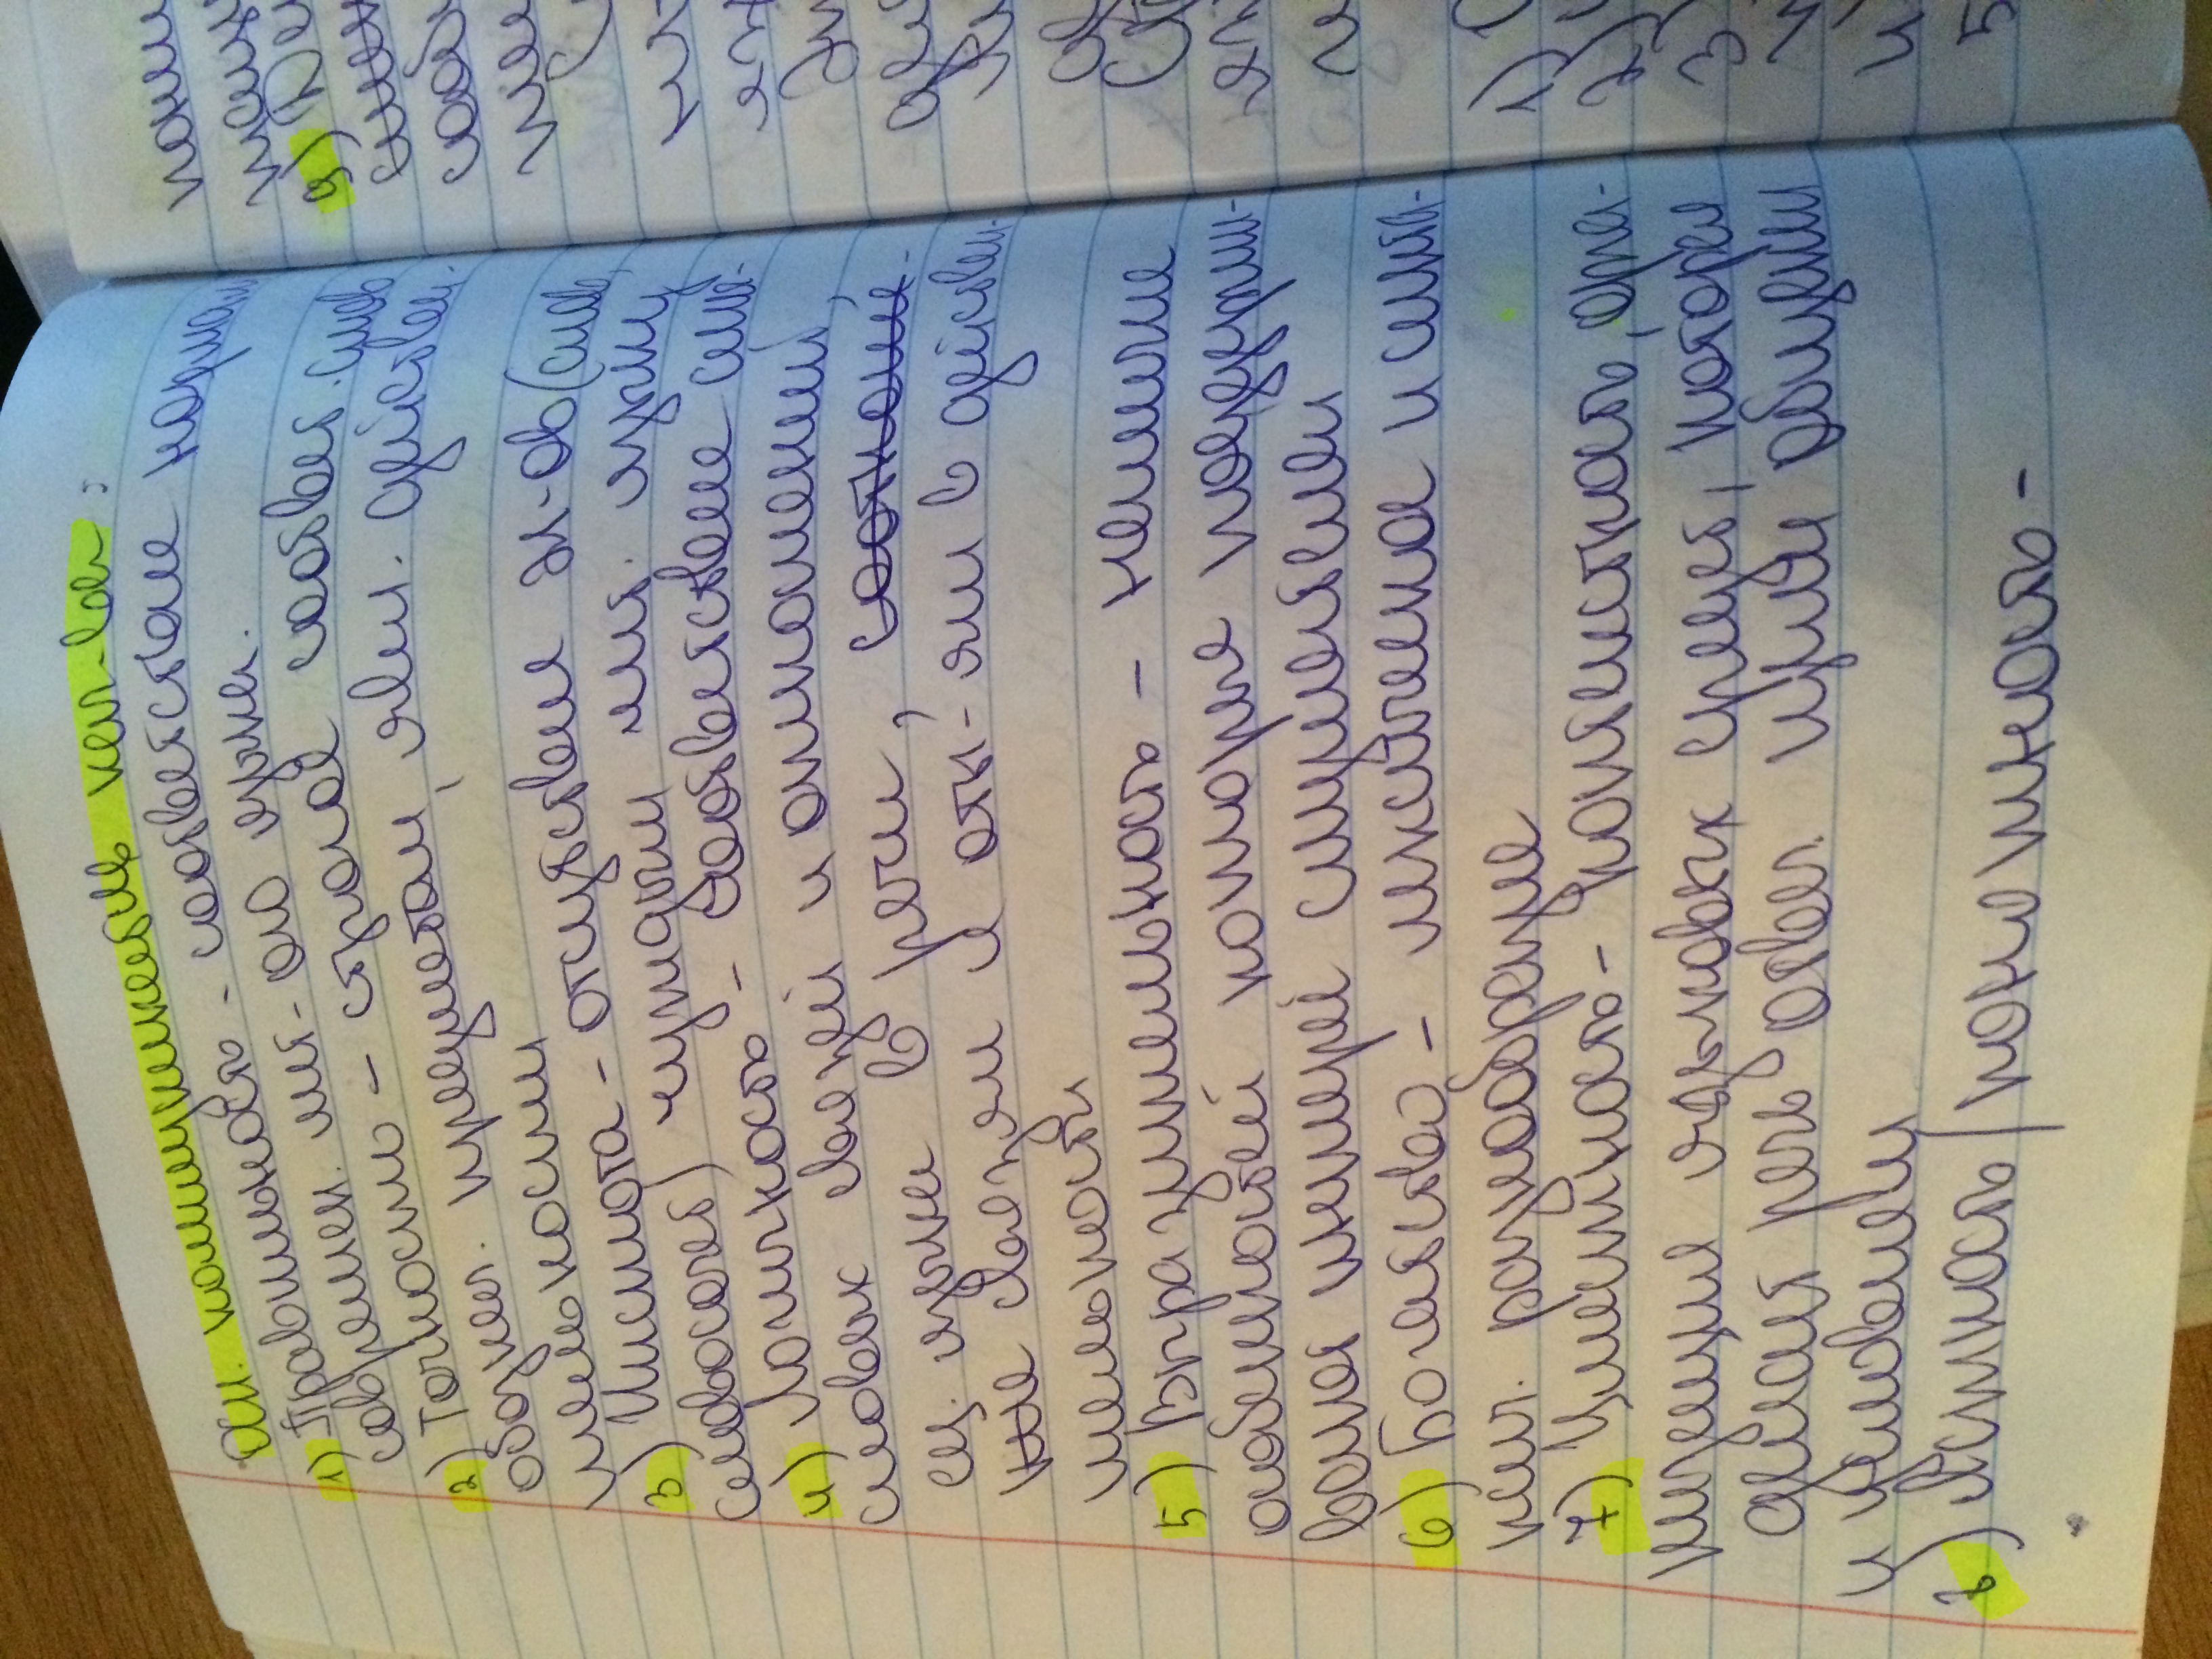 Осн. коммуникатив кач-ва:
1) Правильность - соответствие нормам
современ. лит-ого языка.
2) Точность - строгое соответ. слов
обознач. предметам, явл. действи-
тельности
3) Чистота - отсутствие эл-ов (слов,
словосочет) чуждым лит. языку
4) Логичность - соответствие смы-
словых связей и отношений,
ед. языка в речи, соотноше-
ние связям и отн-ям в действи-
тельности
5) Выразительность - наличие
особенностей которые поддержи-
вают интерес слушателей
6) Богатство - лексическое и синта-
ксич. разнообразие
7) Уместность - контекстность, орга-
низация языковых средст, которая
делает речь отвеч. целям общения
и условиям
8) Ясность / понятность -
9) Де
сооб
1)
2)
3)
4
5